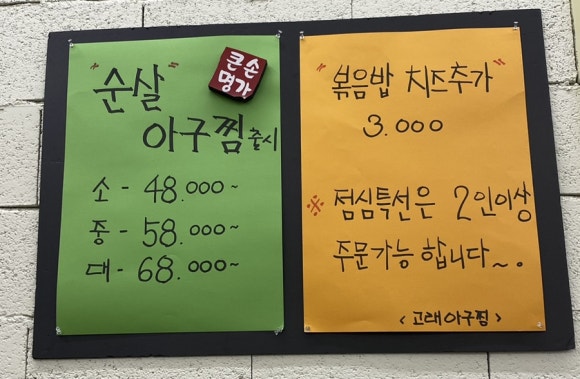 큰손
명가
"순살"
아구찜 출시
소 - 48.000~
중 - 58.000~
대 - 68.000~
"볶음밥 치즈추가"
3.000
※ 점심특선은 2인이상
주문가능 합니다~.
<고래아구찜>